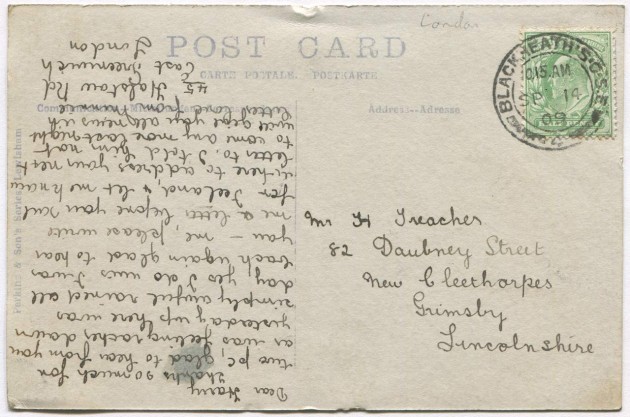 London
POST CARD
CARTE POSTALE. POSTKARTE.
Address—Adresse
BLACKHEATH. S.O. S.E.
10.15.AM
SP 14
09
Mr H Treacher
82 Daubney Street
New Cleethorpes
Grimsby
Lincolnshire
Perkins & Son's Series, Lewisham
Dear Harry
Thanks so much for
two pc, glad to hear from you
as was feeling rather down
yesterday up here was
simply awful rained all
day yes I do miss
each again glad to hear
you — me, please write
me a letter before you sail
for Iceland, & let me know
where to address your next
letter to. I told him not
to come any more last night
will give you all news in
letter love from
45 Halstow Rd
East Greenwich
London